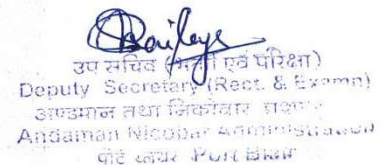 उप सचिव (भर्ती एवं परिक्षा)
Deputy Secretary (Rect. & Examn)
अण्डमान तथा निकोबार
Andaman Nicobar Administration
पोर्ट ब्लेयर Port Blair